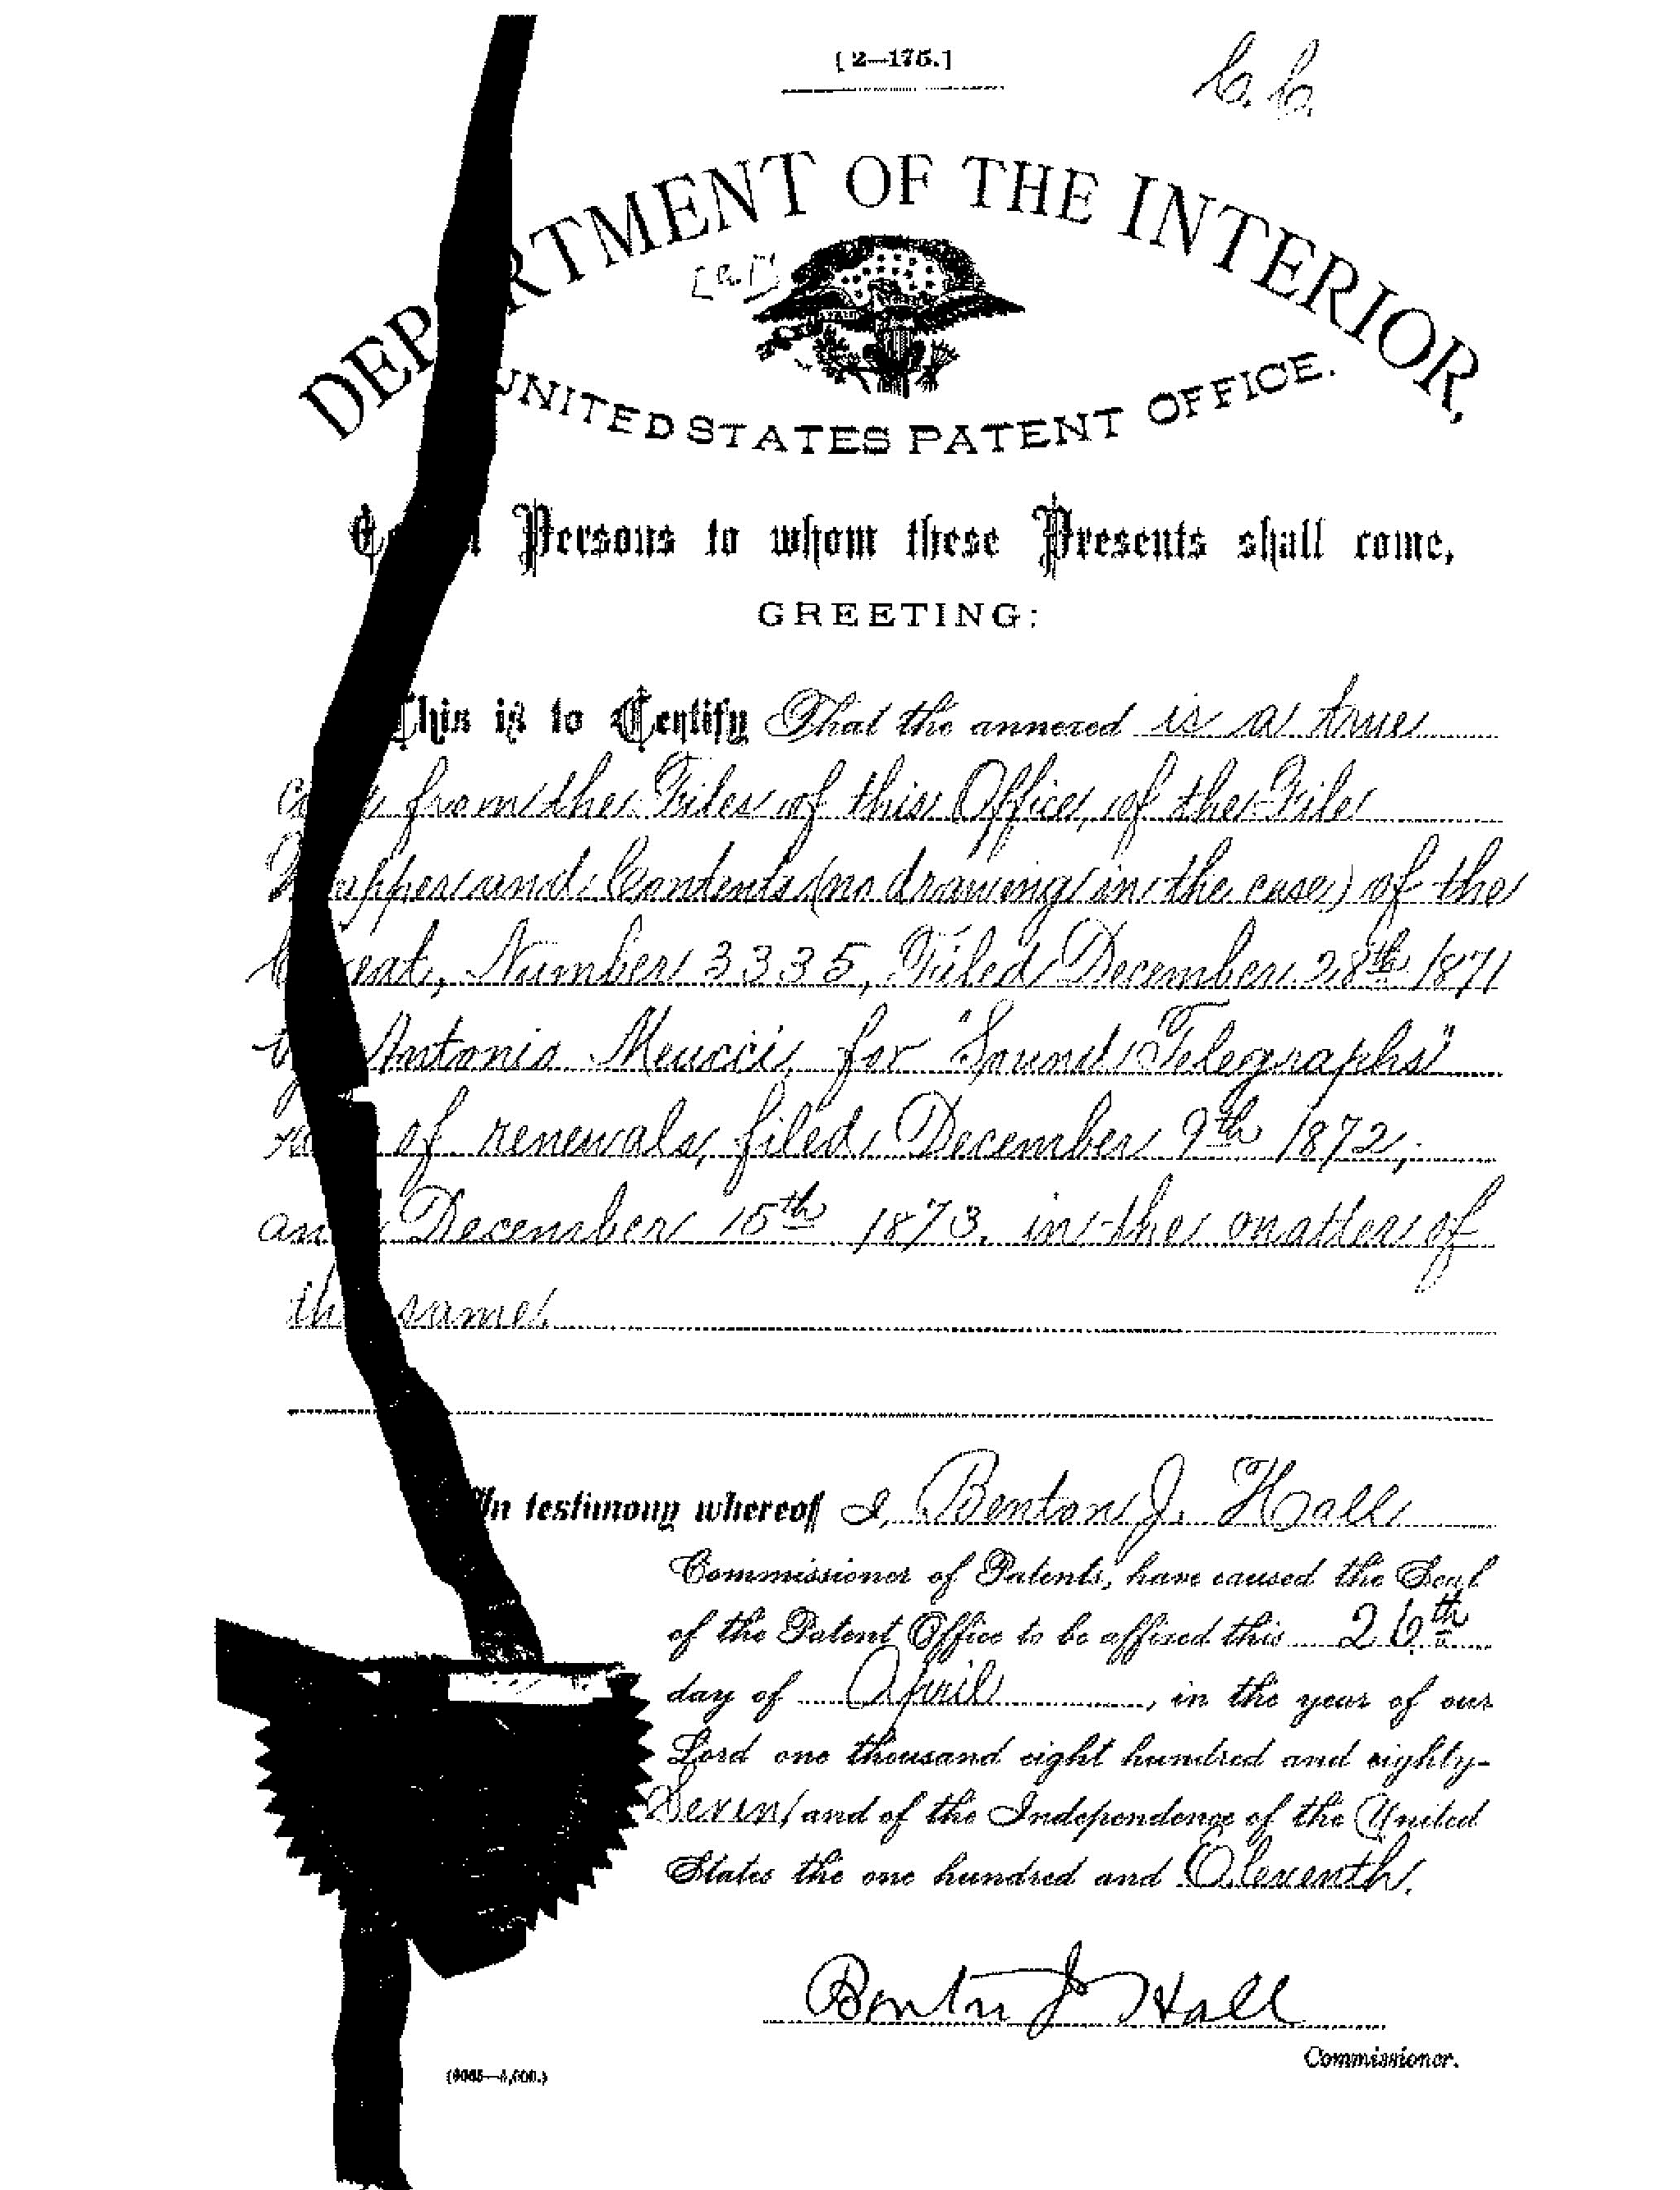 [2—175.]
C. C.
DEPARTMENT OF THE INTERIOR,
UNITED STATES PATENT OFFICE.
Persons to whom these Presents shall come,
GREETING:
This is to Certify That the annexed is a true
from the Files of this Office, of the File
Wrapper and Contents (no drawing in the case) of the
Caveat, Number 3335, Filed December 28th 1871
by Antonio Meucci, for "Sound Telegraphs"
of renewals, filed December 9th 1872,
and December 15th 1873, in the matter of
the same.
In testimony whereof I, Benton J. Hall
Commissioner of Patents, have caused the Seal
of the Patent Office to be affixed this 26th
day of April, in the year of our
Lord one thousand eight hundred and eighty-
Seven, and of the Independence of the United
States the one hundred and Eleventh.
Benton J Hall
Commissioner.